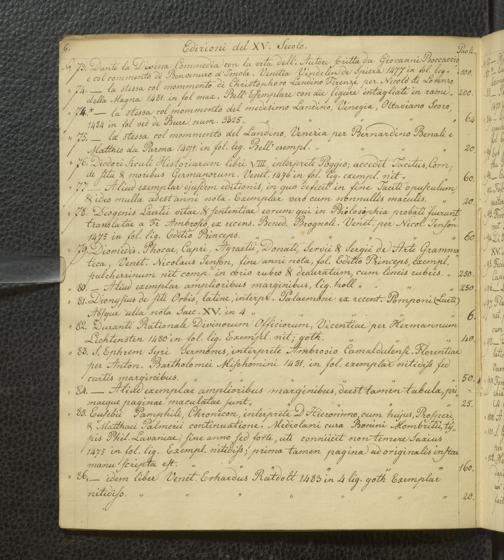 6. Edizioni del XV. Secolo. Paoli
73. Dante la Divina Commedia con la vita dell' Autore scritta da Giovanni Boccaccio
e col commento di Benvenuto d'Imola. Venetia Vendelin da Spira 1477 in fol. leg. 200.
74. — la stessa col mommento di Christophoro Landino Firenze per Nicolò di Lorenzo
della Magna 1481. in fol. max. Bell' Esemplare con due figure intagliate in rame. 200.
74.* — la stessa col mommento del medesimo Landino, Venegia, Octaviano Scoto,
1484 in fol. ved. di Bure num. 64
75. — la stessa col mommento del Landino, Venezia per Bernardino Benali e
Matthio da Parma 1491. in fol. lig. Bell' esempl. 20.
76. Diodori Siculi Historiarum libri VIII, interprete Poggio; accedit Tacitus, Corn,
de situ & moribus Germanorum. Venet. 1476 in fol. lig. exempl. nit. 60.
77. — Aliud exemplar ejusdem editionis, in quo deficit in fine Taciti opusculum
& ideo nulla adest anni nota. Exemplar vero cum nonnullis maculis. 20.
78. Diogenis Laertii vitae & sententiae eorum qui in Philosophia probati fuerunt
translatae a Fr. Ambrosio, ex recens. Bened. Brognoli. Venet. per Nicol. Jenson
1475 in fol. lig. Editio Princeps. 60.
79. Diomedis, Phocae, Capri, Agraetii, Donati, Servii & Sergii de Arte Gramma
tica, Venet. Nicolaus Jenson, sine anni nota, fol. Editio Princeps, Exempl.
pulcherrimum nit. comp. in corio rubro & deauratum, cum lineis rubris. 250.
80. — Aliud exemplar amplioribus marginibus, lig. holl. 250
81. Dionysius de situ Orbis, latine, interpr. Palaemone ex recent. Pomponii (Laeti)
Absque ulla nota Saec. XV. in 4 6.
82. Duranti Rationale Divinorum Officiorum, Vicentiae per Hermannum
Lichtensten 1480 in fol. lig. Exempl. nit. goth. 40.
83. S. Ephrem Syri Sermones, interprete Ambrosio Camaldulense. Florentiae
per Anton. Bartholomei Mischomini 1481. in fol. exemplar nitidiss. sed
curtis marginibus. 50.
84. — Aliud exemplar amplioribus marginibus, deest tamen tabula, pri
maeque paginae maculatae sunt. 25.
85. Eusebii Pamphili, Chronicon, interprete D. Hieronimo, cum hujus, Prosperi,
& Matthaei Palmerii continuatione. Mediolani cura Bonini Mombritii, ty
pis Phil. Lavaniae, sine anno sed forte, uti coniicit non temere Saxius
1475 in fol. lig. Exempl. nitidiss; prima tamen pagina ad originalis instar
manu scripta est. 160.
86. — idem liber Venet. Erhardus Ratdolt 1483 in 4 lig. goth. Exemplar
nitidiss. 20.